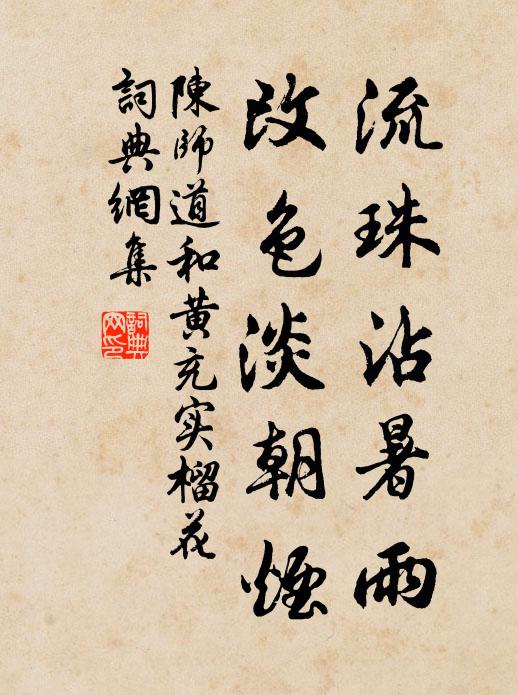 流珠沾暑雨
改色淡朝煙
陳師道和黄充实榴花
詞典網集
詞典
网印